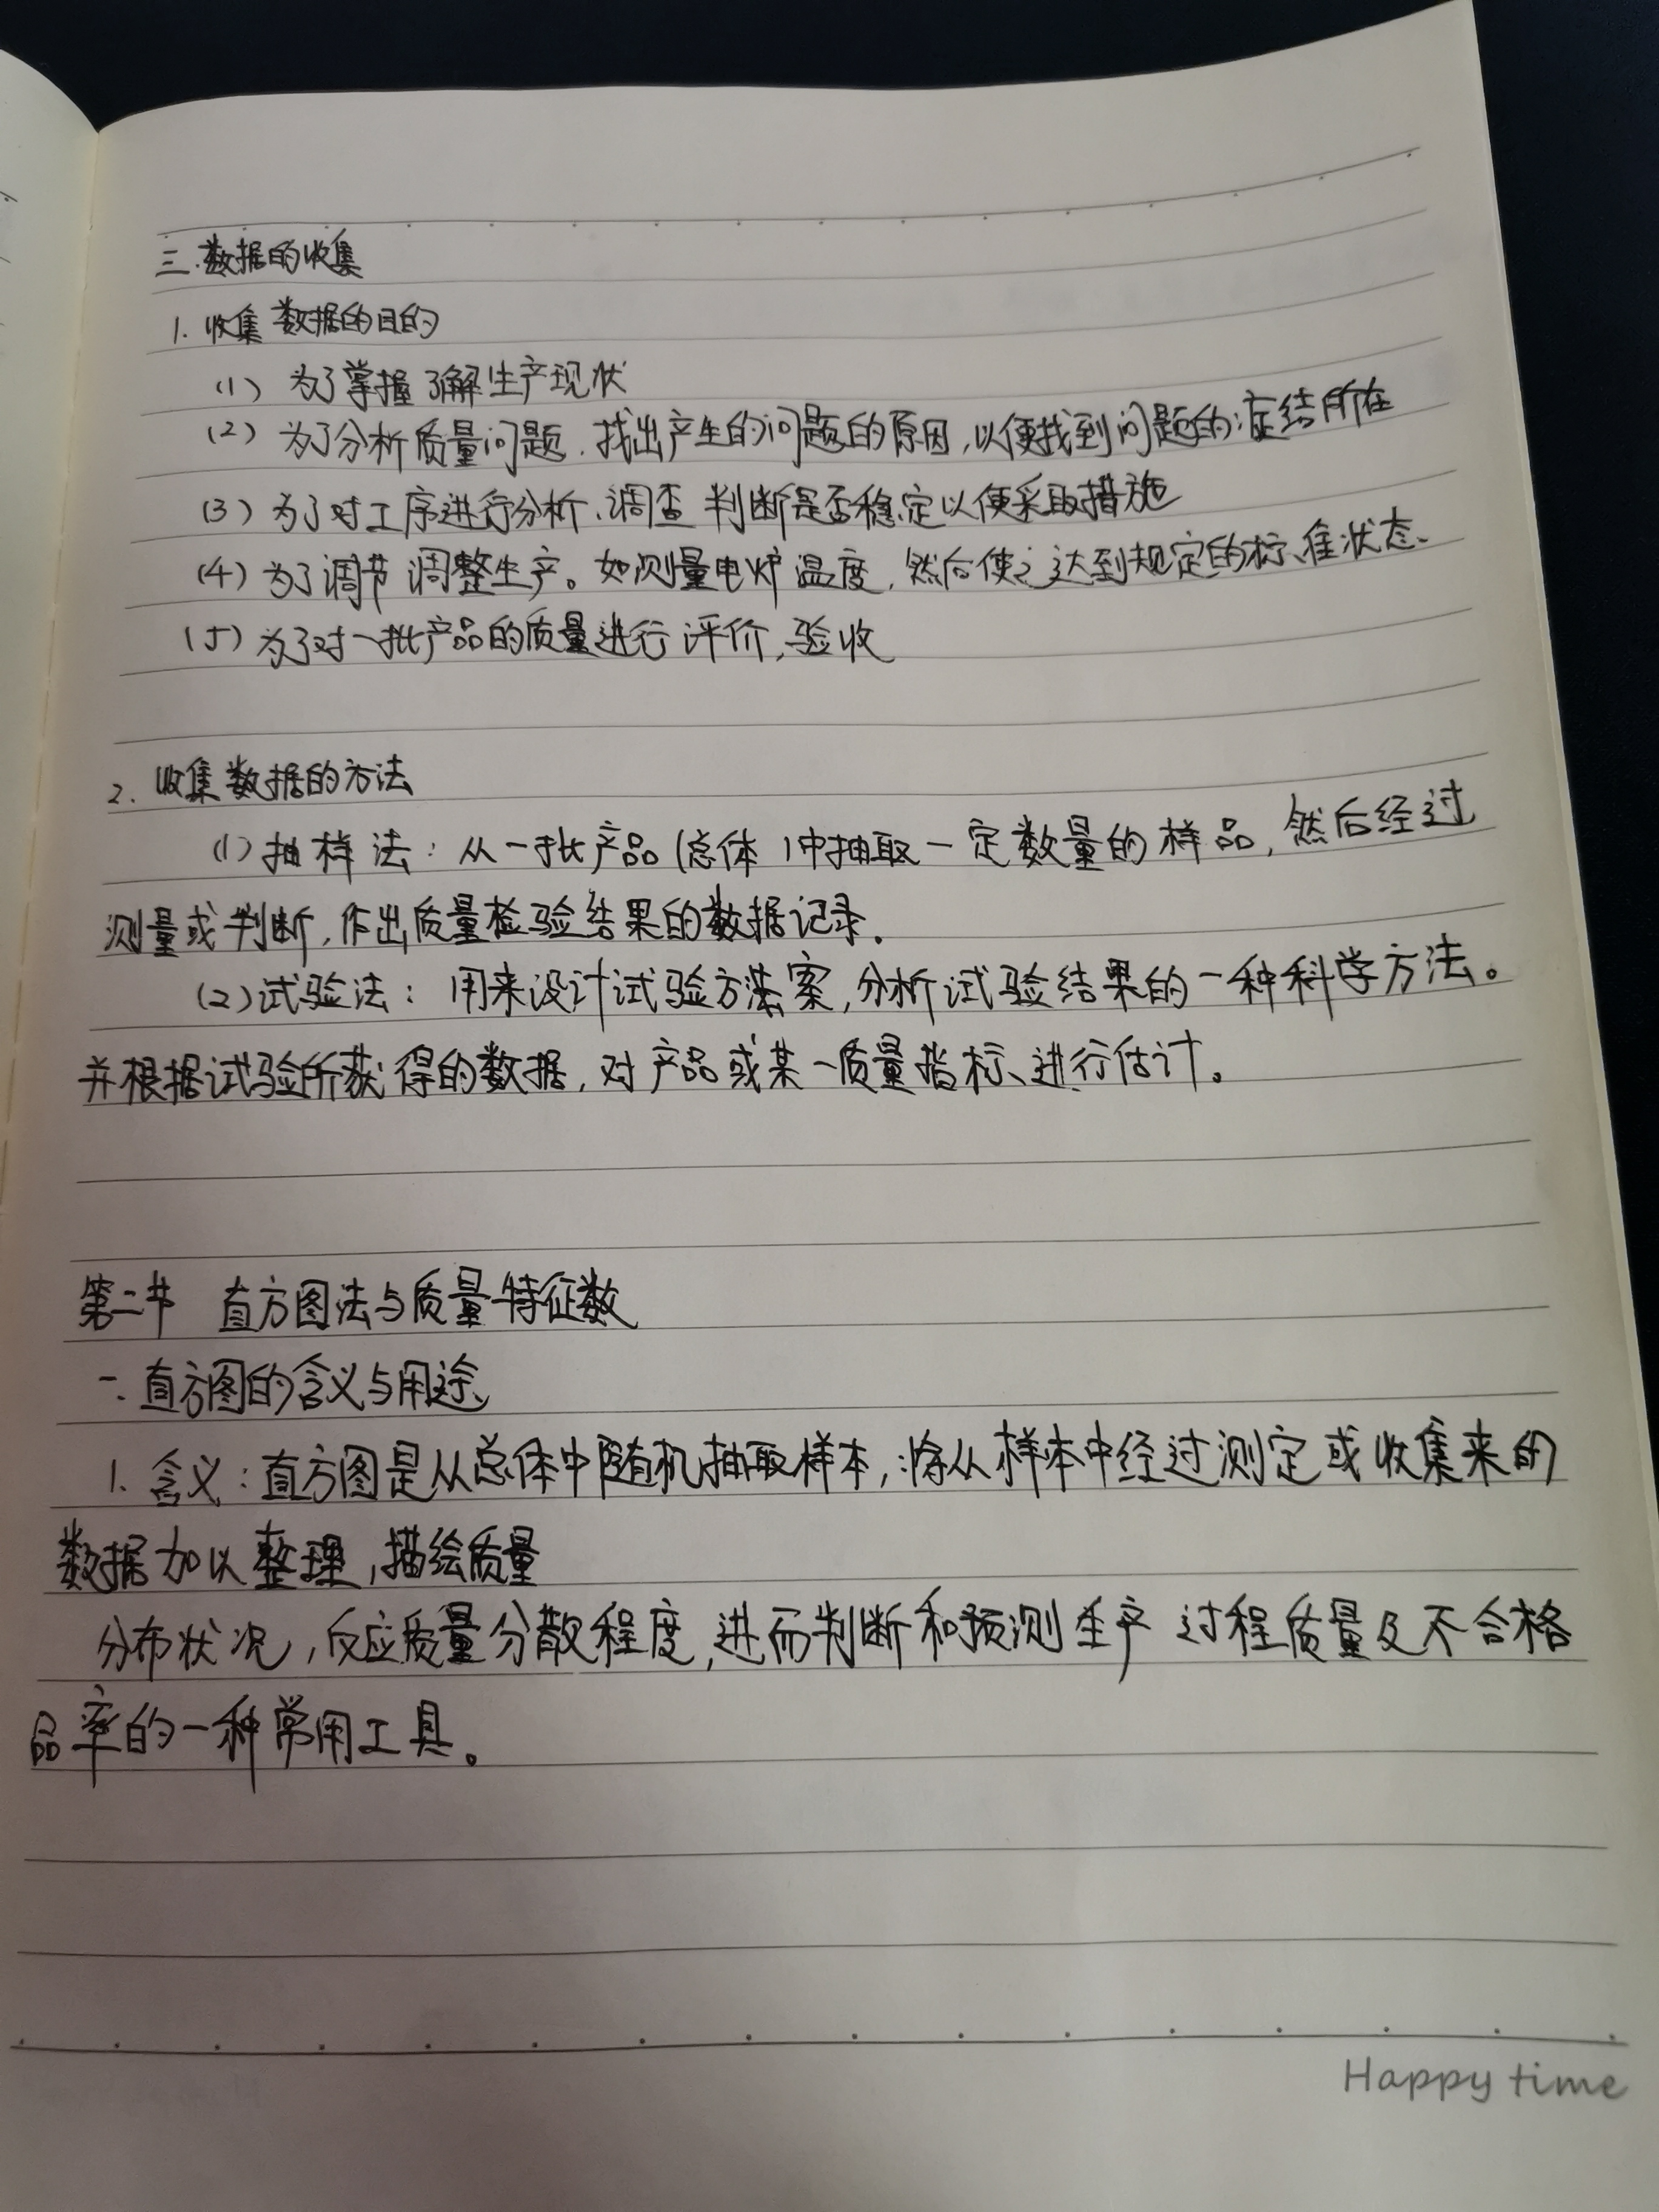 三.数据的收集
1.收集数据的目的
(1) 为了掌握了解生产现状
(2) 为了分析质量问题.找出产生的问题的原因,以便找到问题的症结所在
(3) 为了对工序进行分析、调查 判断是否稳定以便采取措施
(4) 为了调节 调整生产。如测量电炉温度,然后使之达到规定的标准状态、
(5) 为了对一批产品的质量进行评价,验收
2.收集数据的方法
(1)抽样法:从一批产品(总体)中抽取一定数量的样品,然后经过
测量或判断,作出质量检验结果的数据记录.
(2)试验法:用来设计试验方案,分析试验结果的一种科学方法。
并根据试验所获得的数据,对产品或某一质量指标进行估计。
第二节 直方图法与质量特征数
一.直方图的含义与用途
1.含义:直方图是从总体中随机抽取样本,将从样本中经过测定或收集来的
数据加以整理,描绘质量
分布状况,反应质量分散程度,进而判断和预测生产过程质量及不合格
品率的一种常用工具。
Happy time